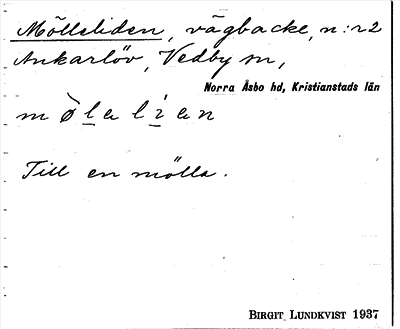 Mölleliden, vägbacke, n:r 2
Ankarlöv, Vedby sn,
Norra Åsbo hd, Kristianstads län
m ø̀ l e l i e n
Till en mölla.
BIRGIT LUNDKVIST 1937